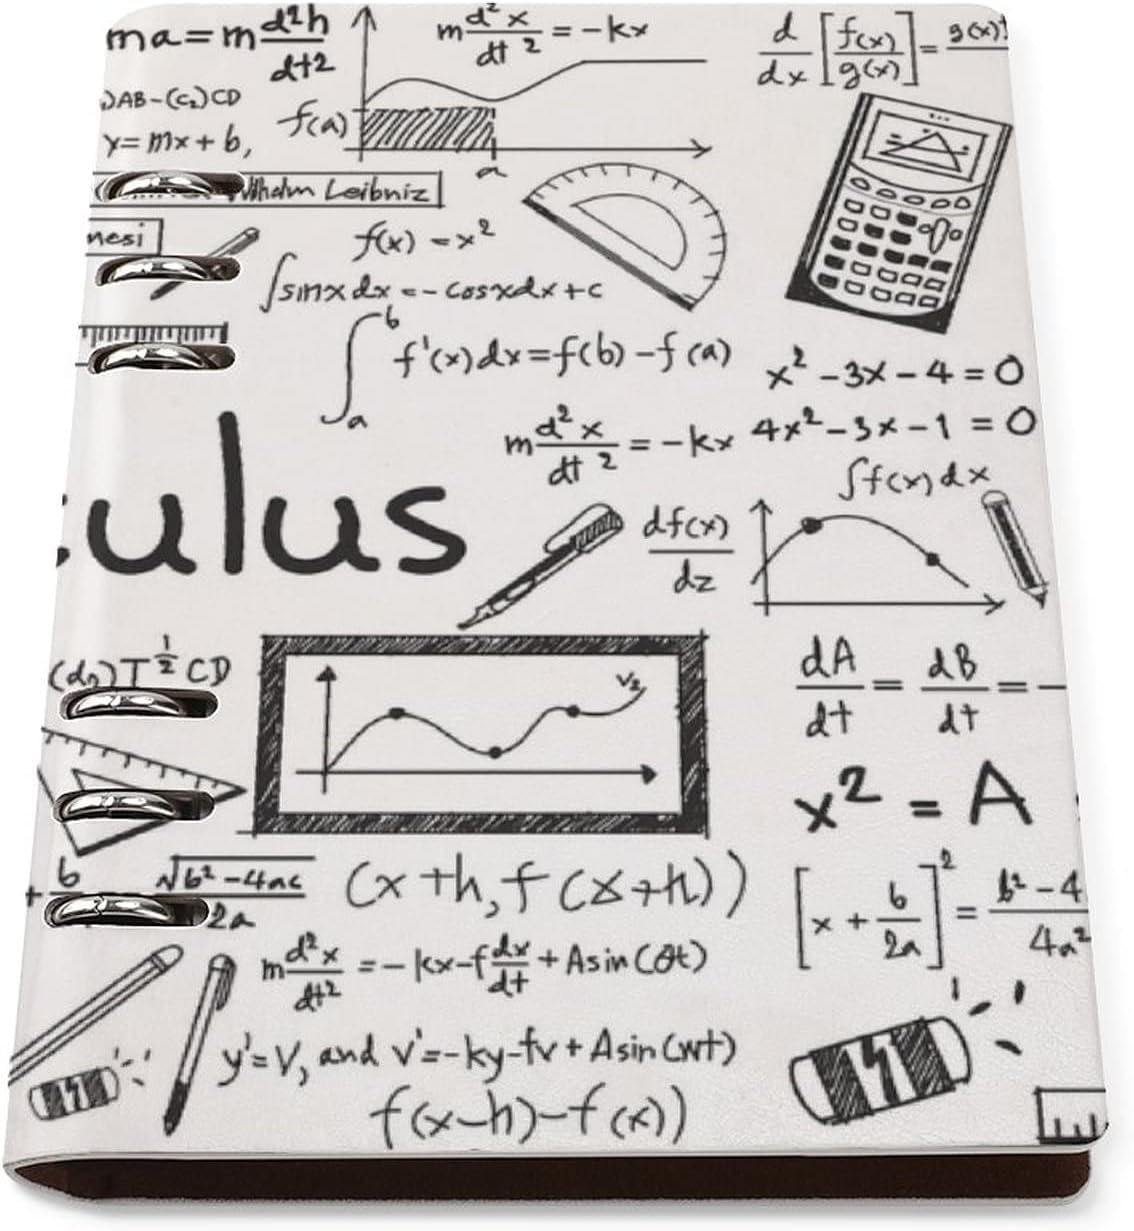 ma = m d²h/dt2
m d²x/dt² = -kx
d/dx [f(x)/g(x)] = g(x)
)AB-(c₂)CD
y = mx + b,
f(a)
a
Leibniz
nesi
f(x) = x²
∫sinxdx = - cosxdx + c
∫ₐᵇ f'(x)dx = f(b) - f(a)
x² - 3x - 4 = 0
m d²x/dt² = -kx
4x² - 3x - 1 = 0
∫f(x)dx
culus
df(x)/dz
(d₂)T^½ CD
V₂
dA/dt = dB/dt = -
x² = A
+ b
√b² - 4ac/2a
(x + h, f(x+h))
[x + b/2a]² = b² - 4/4a²
m d²x/dt² = - kx - f dx/dt + A sin(θt)
y' = V, and v' = -ky - fv + A sin(wt)
f(x-h) - f(x))